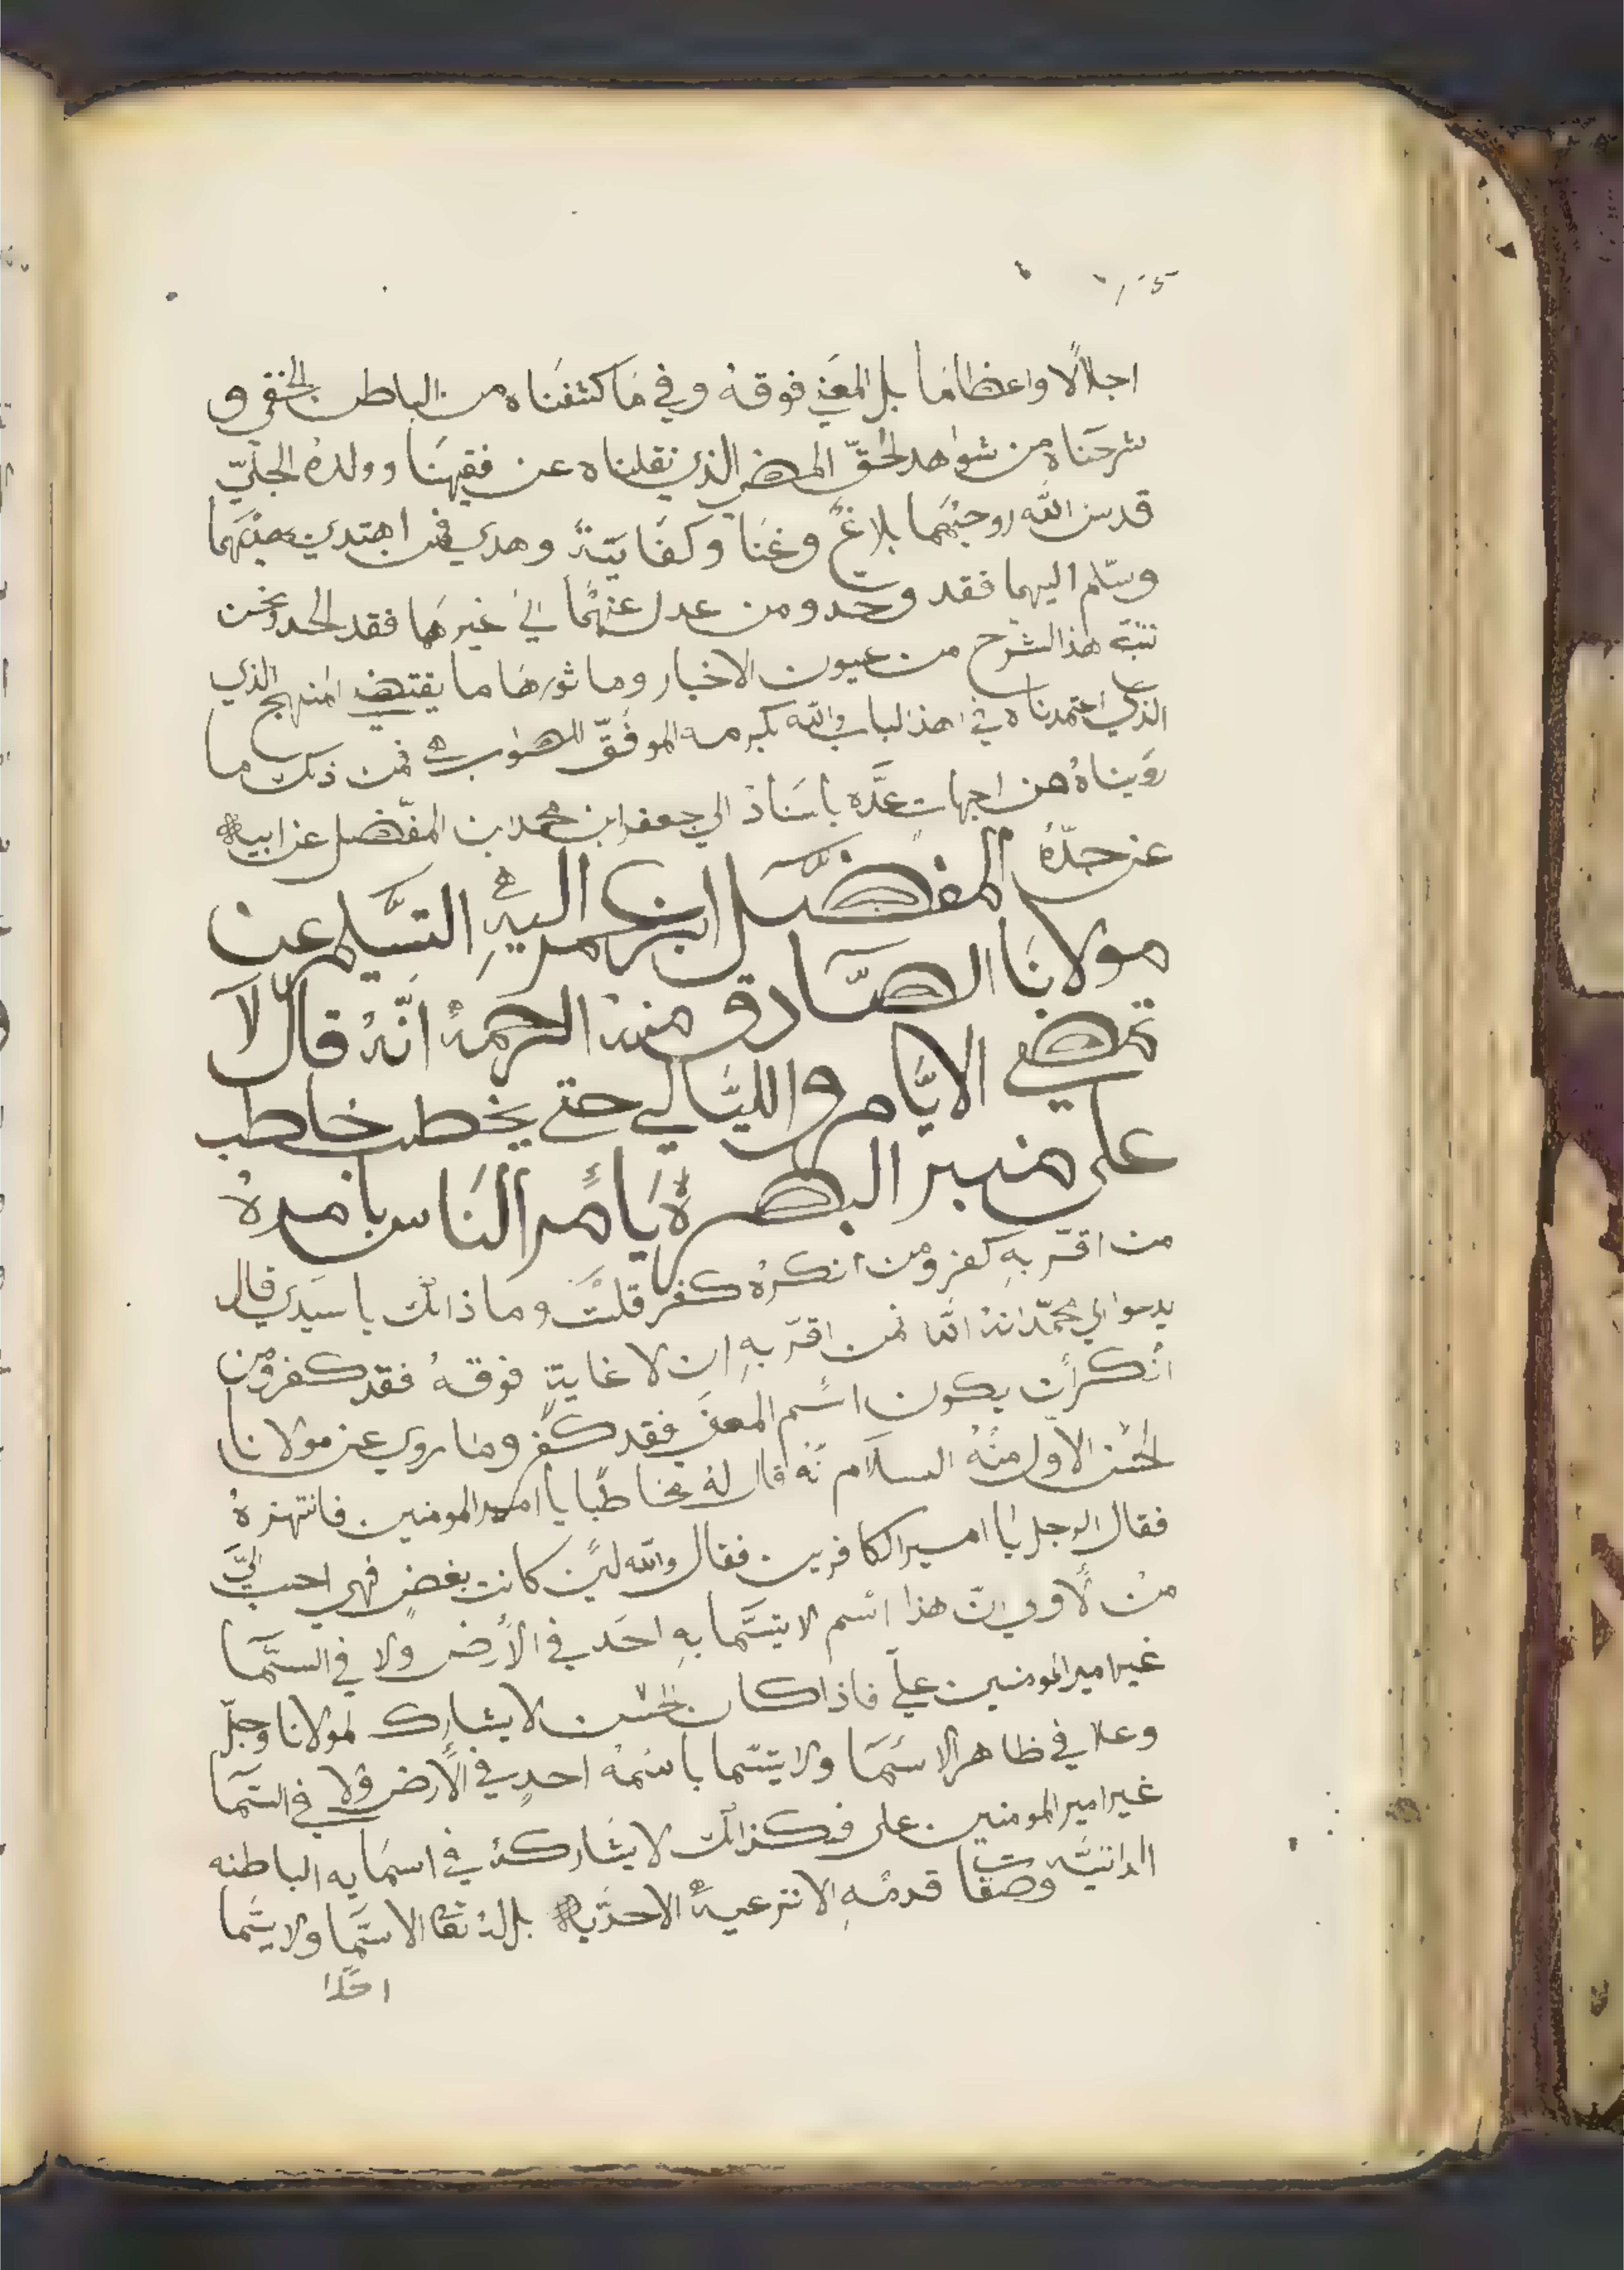 اجلالًا واعظامًا بل المعني فوقهُ وفي ما كشفناه من الباطن الخفي و
شرحناه من شواهد الحقّ المضي الذي نقلناه عن فقيهنا وولدهُ الجليّ
قدس الله روحيهما بلاغٌ وغنا وكفايتةً وهدي فمن اهتدي بهديهما
وسلّم اليهما فقد وحد ومن عدل عنهما الي غيرهما فقد الحد ونحن
هذا الشرح من عيون الاخبار وماثورها ما يقتضي المنهج الذي
الذي اعتمدناه في هذا الباب والله بكرمه الموفّق للصواب فمن ذلك ما
رويناهُ من اجهات عدَّه باسناد الي جعفر ابن محمد ابن المفضل عن ابيه
عن جدّهُ المفضَّل ابن عمر اليهِ التسَّليم عن
مولانا الصَّادق منه الرحمهُ انّهُ قال لا
تمضي الايَّام والليَّالي حتي يخطب خاطب
على منبر البصرةُ يأمر النَاس بامرهُ
من اقرّ بهِ كفر ومن انكرهُ كفر قلتُ وما ذالك يا سيَدي قال
يدعوا الي محمّد انهُ الله فمن اقرّ بهِ ان لا غايةٍ فوقهُ فقد كفر ومن
انكر أن يكون اسم المعنَي فقد كفر وما روي عن مولانا
الحسن الاوّل منهُ السلام نّه قال لهُ مخاطبًا يا امير المومنين فانتهزهُ
فقال الرجل يا امير الكافرين فقال والله لين كانت بغضٍ فهي احب اليَّ
من لأولي انّ هذا اسم لا يتسَّما بهِ احَد في الأرض ولا في السَّمآ
غير امير المومنين عليّ فاذا كان الحسن لا يشارك لمولانا وجلّ
وعلا في ظاهر الاسمَآ ولا يتسّما باسمهُ احدٍ في الأرض ولا في السمَآ
غير امير المومنين على فكذالك لا يشاركهُ في اسمايه الباطنه
الداتيّه وصفات قدمهِ الانزعيةُ الاحديّه بل لهُ الاسمَآ ولا يسَما
احَدًا